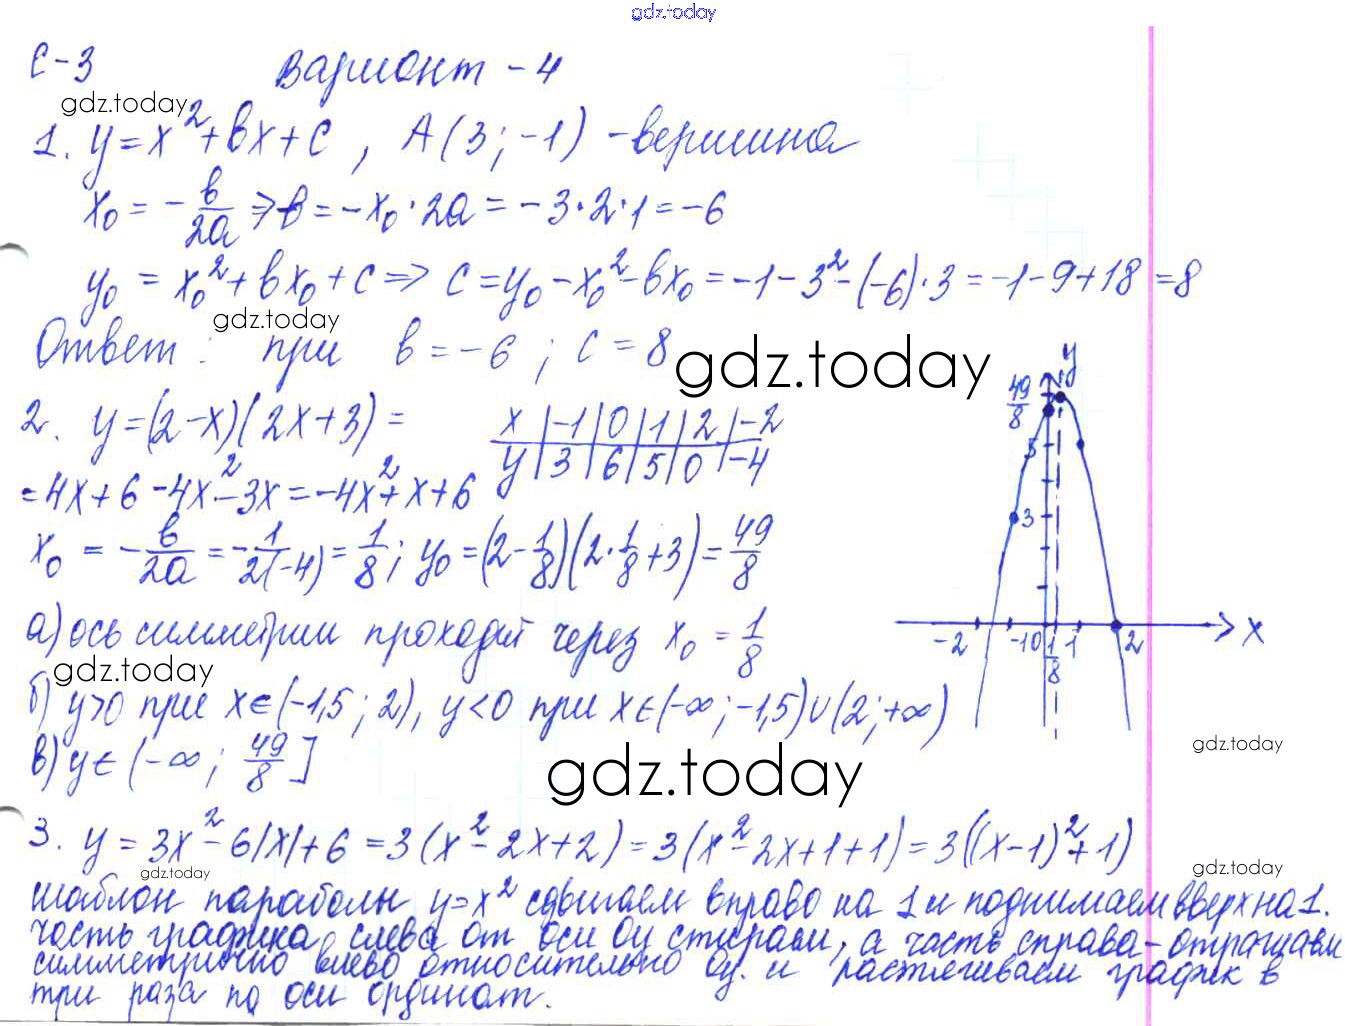 gdz.today
С-3 Вариант - 4
gdz.today
1. y = x² + bx + c , A(3; -1) - вершина
x₀ = - b/2a ⇒ b = -x₀ · 2a = -3·2·1 = -6
y₀ = x₀² + bx₀ + c ⇒ c = y₀ - x₀² - bx₀ = -1 - 3² - (-6)·3 = -1 - 9 + 18 = 8
gdz.today
Ответ: при b = -6 ; c = 8
gdz.today
2. y = (2-x)(2x+3) =
= 4x + 6 - 4x² - 3x = -4x² + x + 6
x | -1 | 0 | 1 | 2 | -2
y | 3 | 6 | 5 | 0 | -4
x₀ = - b/2a = - 1/2(-4) = 1/8 ; y₀ = (2 - 1/8)(2·1/8 + 3) = 49/8
y
49/8
5
3
-2 -1 0 1/8 1 2 x
а) ось симметрии проходит через x₀ = 1/8
gdz.today
б) y>0 при x∈(-1,5 ; 2), y<0 при x∈(-∞; -1,5)∪(2; +∞)
gdz.today
в) y∈(-∞ ; 49/8]
gdz.today
3. y = 3x² - 6|x| + 6 = 3(x² - 2x + 2) = 3(x² - 2x + 1 + 1) = 3((x-1)² + 1)
gdz.today
gdz.today
шаблон параболы y=x² сдвигаем вправо на 1 и поднимаем вверх на 1.
часть графика слева от оси Оу стираем, а часть справа - отражаем
симметрично влево относительно Оу. и растягиваем график в
три раза по оси ординат.